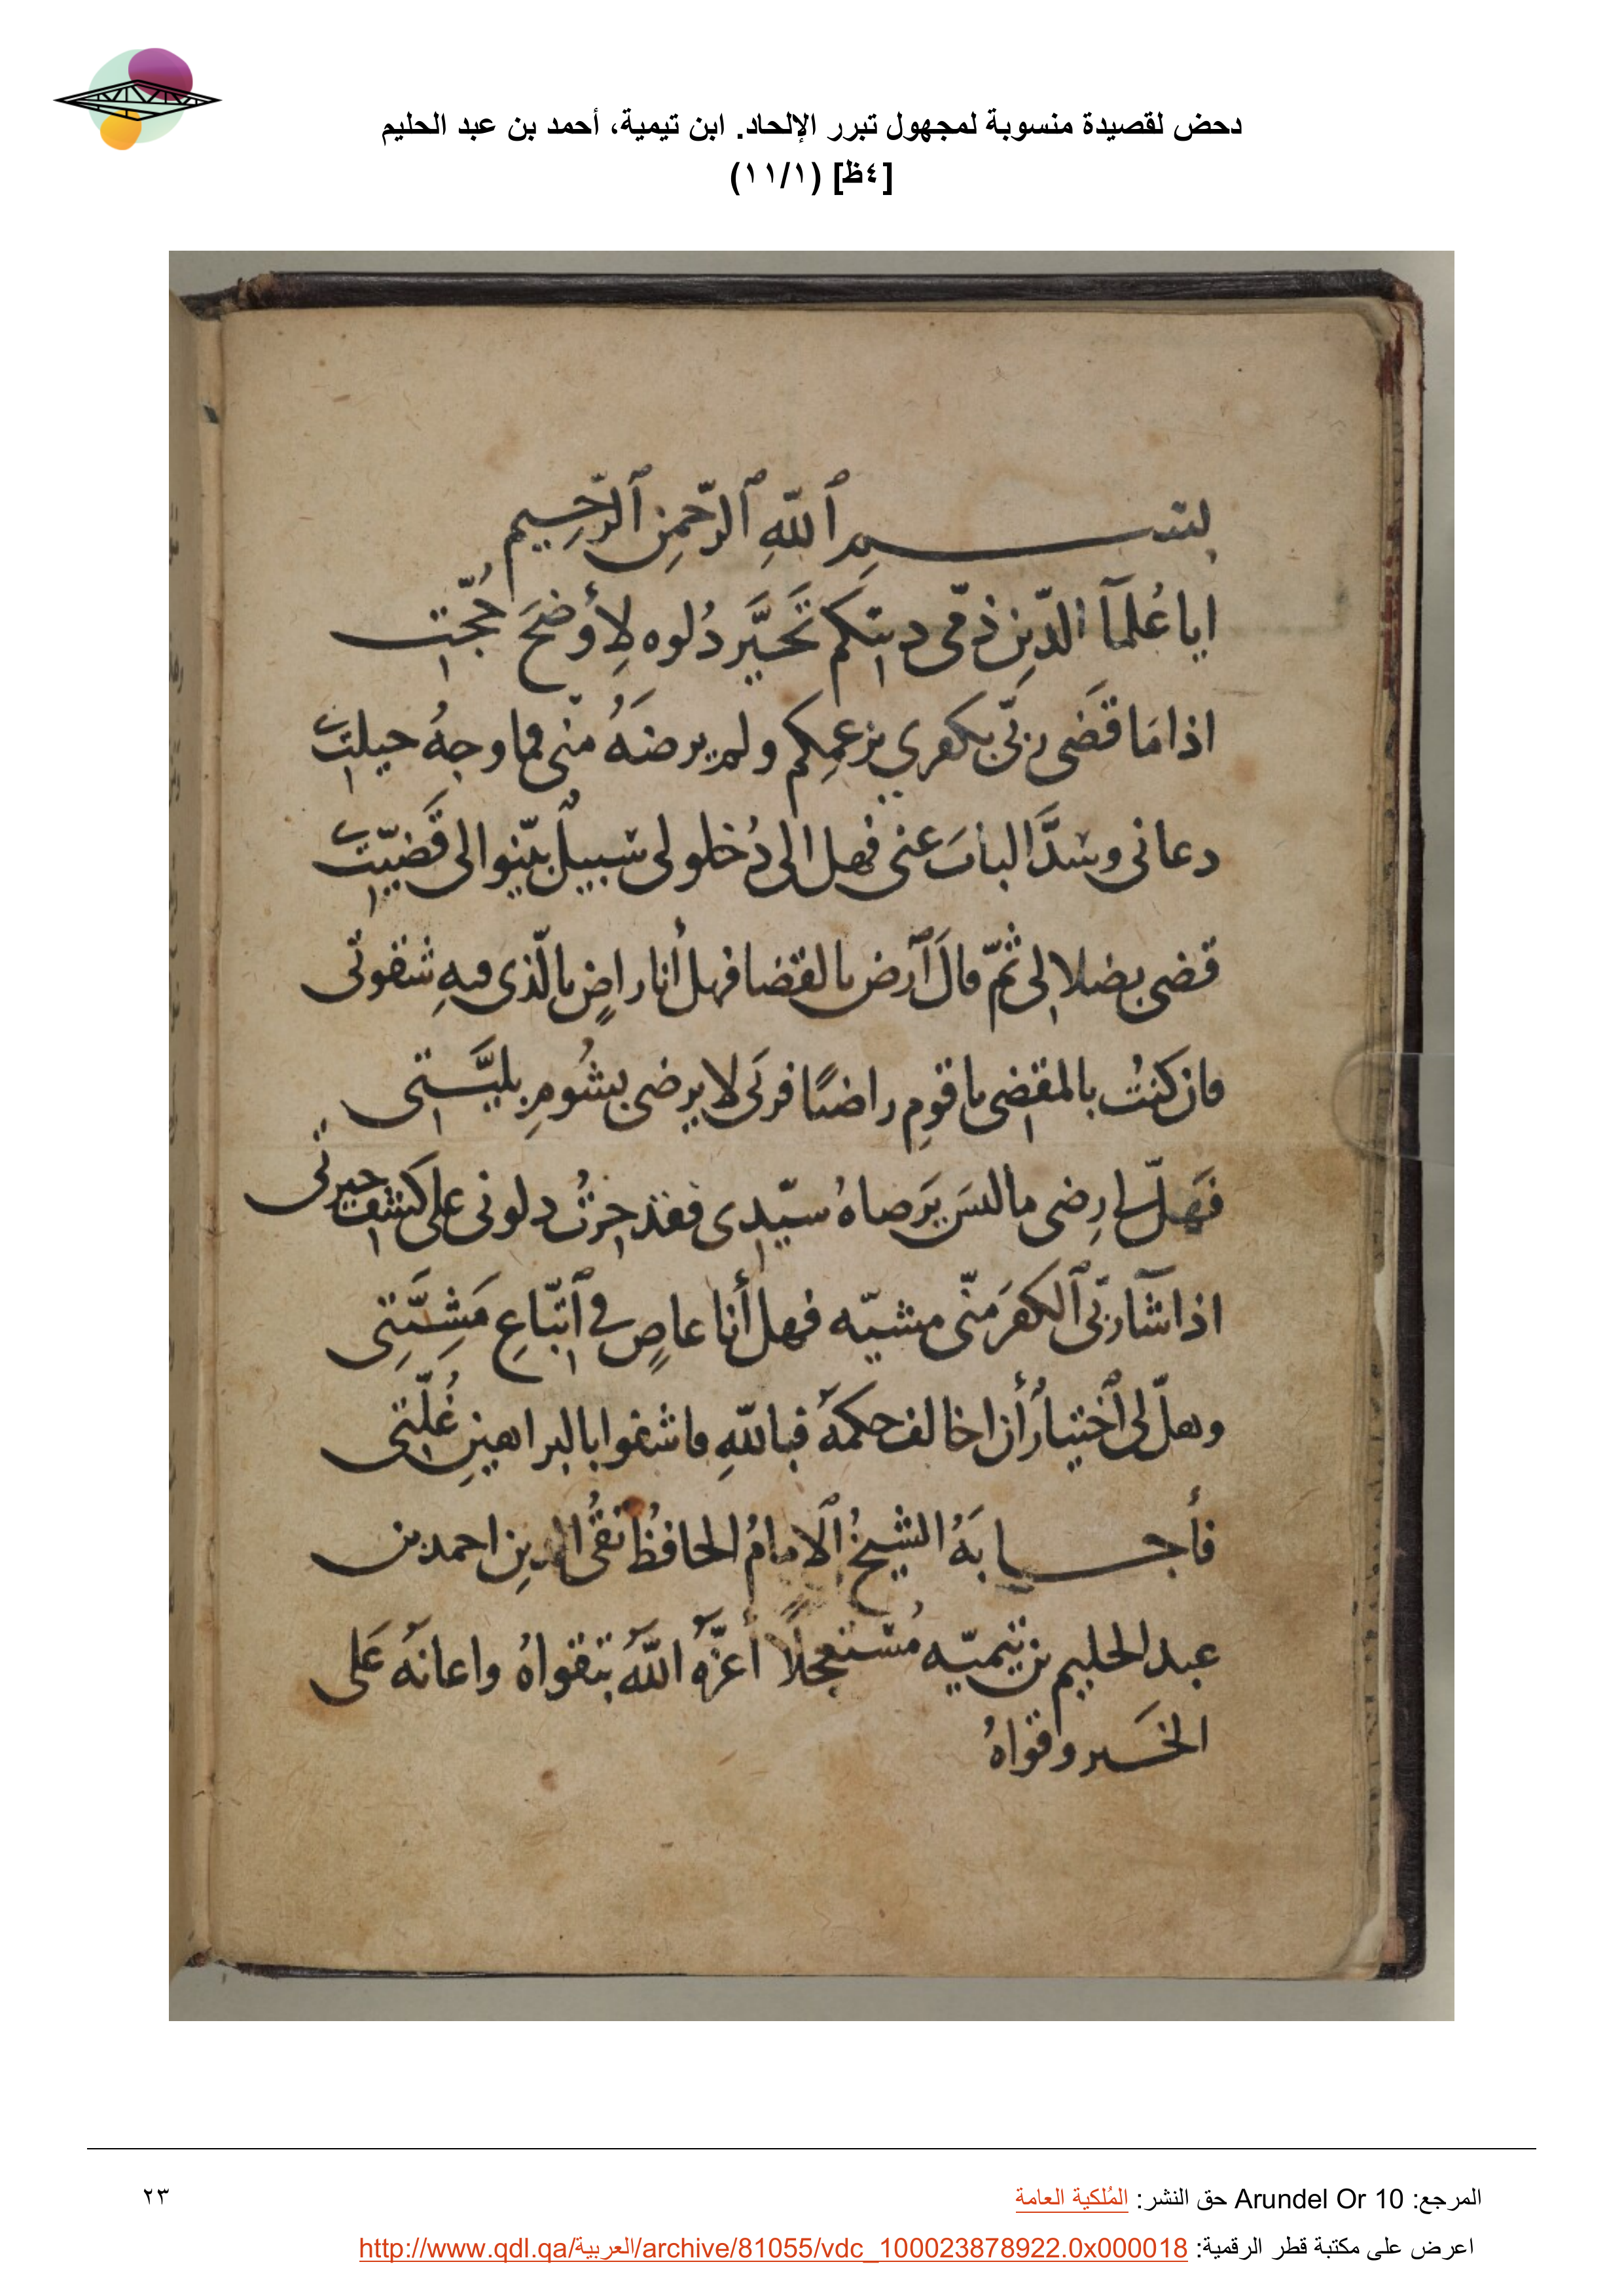 دحض لقصيدة منسوبة لمجهول تبرر الإلحاد. ابن تيمية، أحمد بن عبد الحليم
[٤ظ] (١١/١)
بسم ٱللّهِ ٱلرّحمنِ ٱلرّحِيم
ايا عُلمآ الدّينِ ذمّى دينكم تَحَيَّر دُلوه لِأوضَح حُجّتى
اذا مَا قَضَى ربّى بكفرى بزعمِكم ولم يرضهُ منّى فما وجهُ حيلتى
دعانى وسَدَّ البابَ عنى فهل الى دُخلو لى سبيلٌ بيّنوا لى قَضيّتى
قضى بضلالى ثمّ قالَ ٱرض بالقضا فهل أنا راضٍ بالّذى فيهِ شقوتى
فان كنتُ بالمقضى يا قومِ راضيًا فربّى لا يرضى بشُومِ بليَّتى
فهل لى ارضى ما ليسَ يَرضاهُ سيّدى فقد حِرتُ دلونى على كشف حيرتى
اذا شآ ربّى ٱلكفرَ منّى مشيّه فهل أنا عاصٍ فى ٱتّباعِ مَشِيَّتِى
وهل لى ٱختيارٌ أن اخالف حكمهُ فبالله فاشفوا بالبراهينِ غُلّتى
فأجابَهُ الشيخُ ٱلامامُ الحافظُ تقىُّ الدينِ احمد بن
عبد الحليم بن تيميّه مُستعجلًا أعزّهُ اللّهُ بتقواهُ واعانهُ عَلى
الخَير وقواهُ
المرجع: Arundel Or 10 حق النشر: المُلكية العامة
٢٣
اعرض على مكتبة قطر الرقمية: http://www.qdl.qa/العربية/archive/81055/vdc_100023878922.0x000018